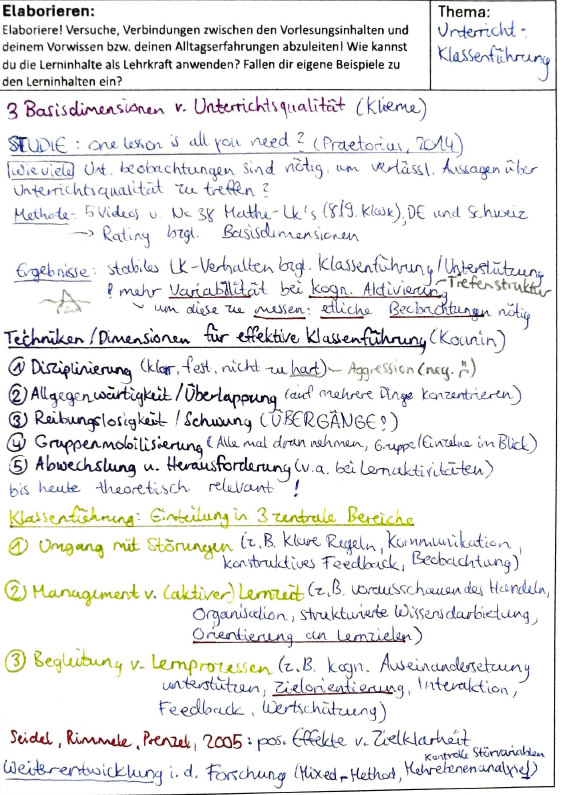 Elaborieren:
Elaboriere! Versuche, Verbindungen zwischen den Vorlesungsinhalten und
deinem Vorwissen bzw. deinen Alltagserfahrungen abzuleiten! Wie kannst
du die Lerninhalte als Lehrkraft anwenden? Fallen dir eigene Beispiele zu
den Lerninhalten ein?
Thema:
Unterricht-
Klassenführung
3 Basisdimensionen v. Unterrichtsqualität (Klieme)
STUDIE: one lesson is all you need? (Praetorius, 2014)
Wie viele Unt. beobachtungen sind nötig, um verlässl. Aussagen über
Unterrichtsqualität zu treffen?
Methode: 5 Videos v. N=38 Mathe-Lk's (8/9. Klasse), DE und Schweiz
→ Rating bzgl. Basisdimensionen
Ergebnisse: stabiles LK-Verhalten bzgl. Klassenführung/Unterstützung
! mehr Variabilität bei kogn. Aktivierung - Tiefenstruktur
um diese zu messen: etliche Beobachtungen nötig
Techniken/Dimensionen für effektive Klassenführung (Kounin)
① Disziplinierung (klar, fest, nicht zu hart) - Aggression (neg.)
② Allgegenwärtigkeit/Überlappung (auf mehrere Dinge konzentrieren)
③ Reibungslosigkeit/Schwung (ÜBERGÄNGE!)
④ Gruppenmobilisierung (Alle mal dran nehmen, Gruppe/Einzelne im Blick)
⑤ Abwechslung u. Herausforderung (v.a. bei Lernaktivitäten)
bis heute theoretisch relevant !
Klassenführung: Einteilung in 3 zentrale Bereiche
① Umgang mit Störungen (z.B. klare Regeln, Kommunikation,
konstruktives Feedback, Beobachtung)
② Management v. (aktiver) Lernzeit (z.B. vorausschauendes Handeln,
Organisation, strukturierte Wissensdarbietung,
Orientierung an Lernzielen)
③ Begleitung v. Lernprozessen (z.B. kogn. Auseinandersetzung
unterstützen, Zielorientierung, Interaktion,
Feedback, Wertschätzung)
Seidel, Rimmele, Prenzel, 2005: pos. Effekte v. Zielklarheit
Kontrolle Störvariablen
Weiterentwicklung i. d. Forschung (Mixed-Method, Mehrebenenanalyse)